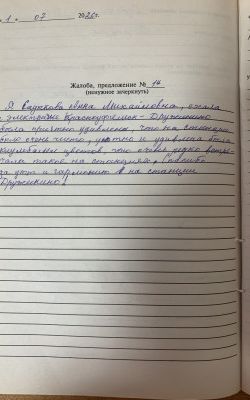 1. 07 2025г.
Жалоба, предложение № 14
(ненужное зачеркнуть)
Я Михайловна, ехала
в электричке Красноуфимск - Дружинино
была приятно удивлена, что на станции
было очень чисто, уютно и удивлена была
клумбами цветов, что очень редко встре
чала такое на станциях. Спасибо
за уют и гармонию в на станции
Дружинино!